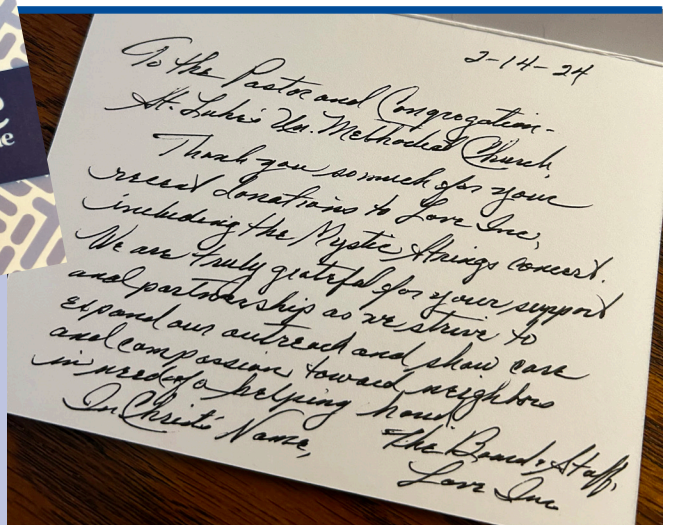 2-14-24
To the Pastor and Congregation-
St. Luke's Un. Methodist Church,
Thank you so much for your
recent donations to Love Inc,
including the Mystic Strings concert.
We are truly grateful for your support
and partnership as we strive to
expand our outreach and show care
and compassion toward neighbors
in need of a helping hand.
In Christ's Name,
The Board & Staff,
Love Inc.